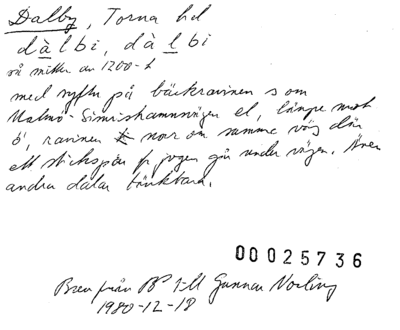 Dalby, Torna hd
dàlbi, dà lbi
så mitten av 1200-t
med syftn på bäckravinen som
Malmö-Simrishamnvägen el, längre mot
ö, ravinen norr om samme väg där
ett stickspår fr jvgen går under vägen. Även
andra dalar tänkbara.
00025736
Brev från BP till Gunnar
1980-12-18